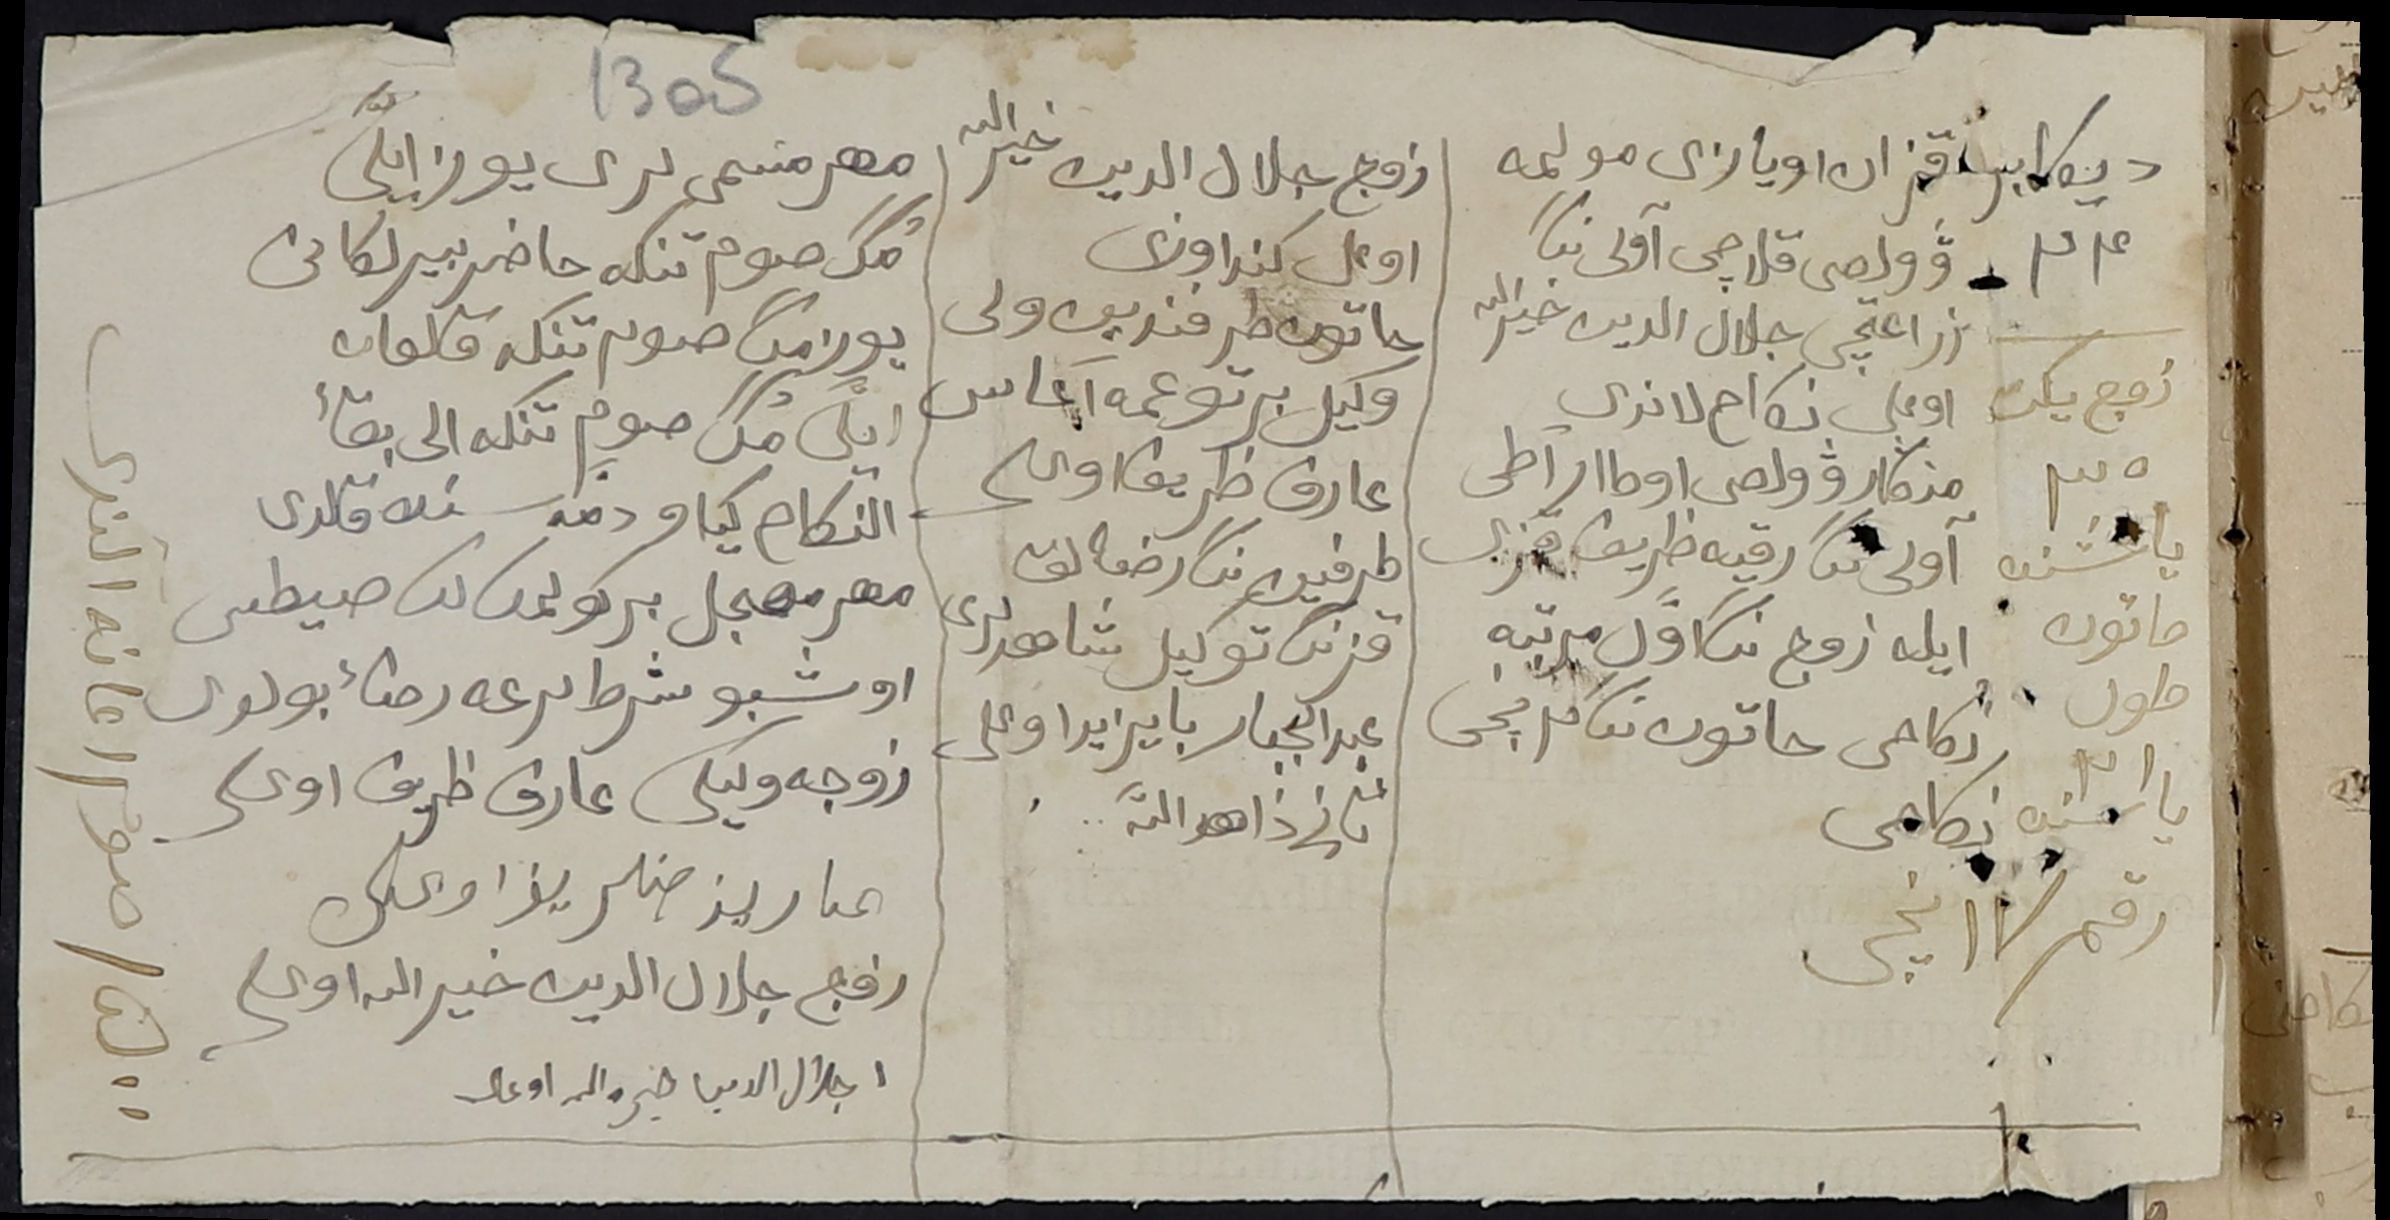 1305
دیکابر قزان اویازی مولمه
۲۴
ڤولصی قلاچی آولی ننگ
زراعتچی جلال الدین خیر الله
اوغلی نکاح لاندی
مذکار ڤولصی اوطار آطی
آولی ننگ رقیه ظریف قزی
ایله زوج ننگ اوّل مرتبه
نکاحی خاتون ننگ نچی
نکاحی
زوج یکت
۳۵
یاشنده
خاتون
طول
۳۱ یا
سنده
رقم ۱۷ نچی
زوج جلال الدین خیر الله
اوغلی کند اوزی
خاتون طرفندین ولی
وکیل بر توغمه آغاسی
عارف ظریف اوغلی
طرفین ننگ رضالق
قزننگ توکیل شاهدلری
عبد الجبار بایزید اوغلی
ذاهد الله
مهر مسمی لری یوز ایکی
مڭ صوم تنکه حاضر بیرلکانی
یوز مڭ صوم تنکه قلغان
ایکی مڭ صوم تنکه الی بقاء
النکاح کیاو ذمه سنده قلدی
مهر معجل بیرکولمک لک صیطسی
اوشبو شرط لرغه رضاء بولدی
زوجه وکیلی عارف ظریف اوغلی
زوج جلال الدین خیر الله اوغلی
جلال الدین خیر الله اوغلی
صوم اعانه آلندی